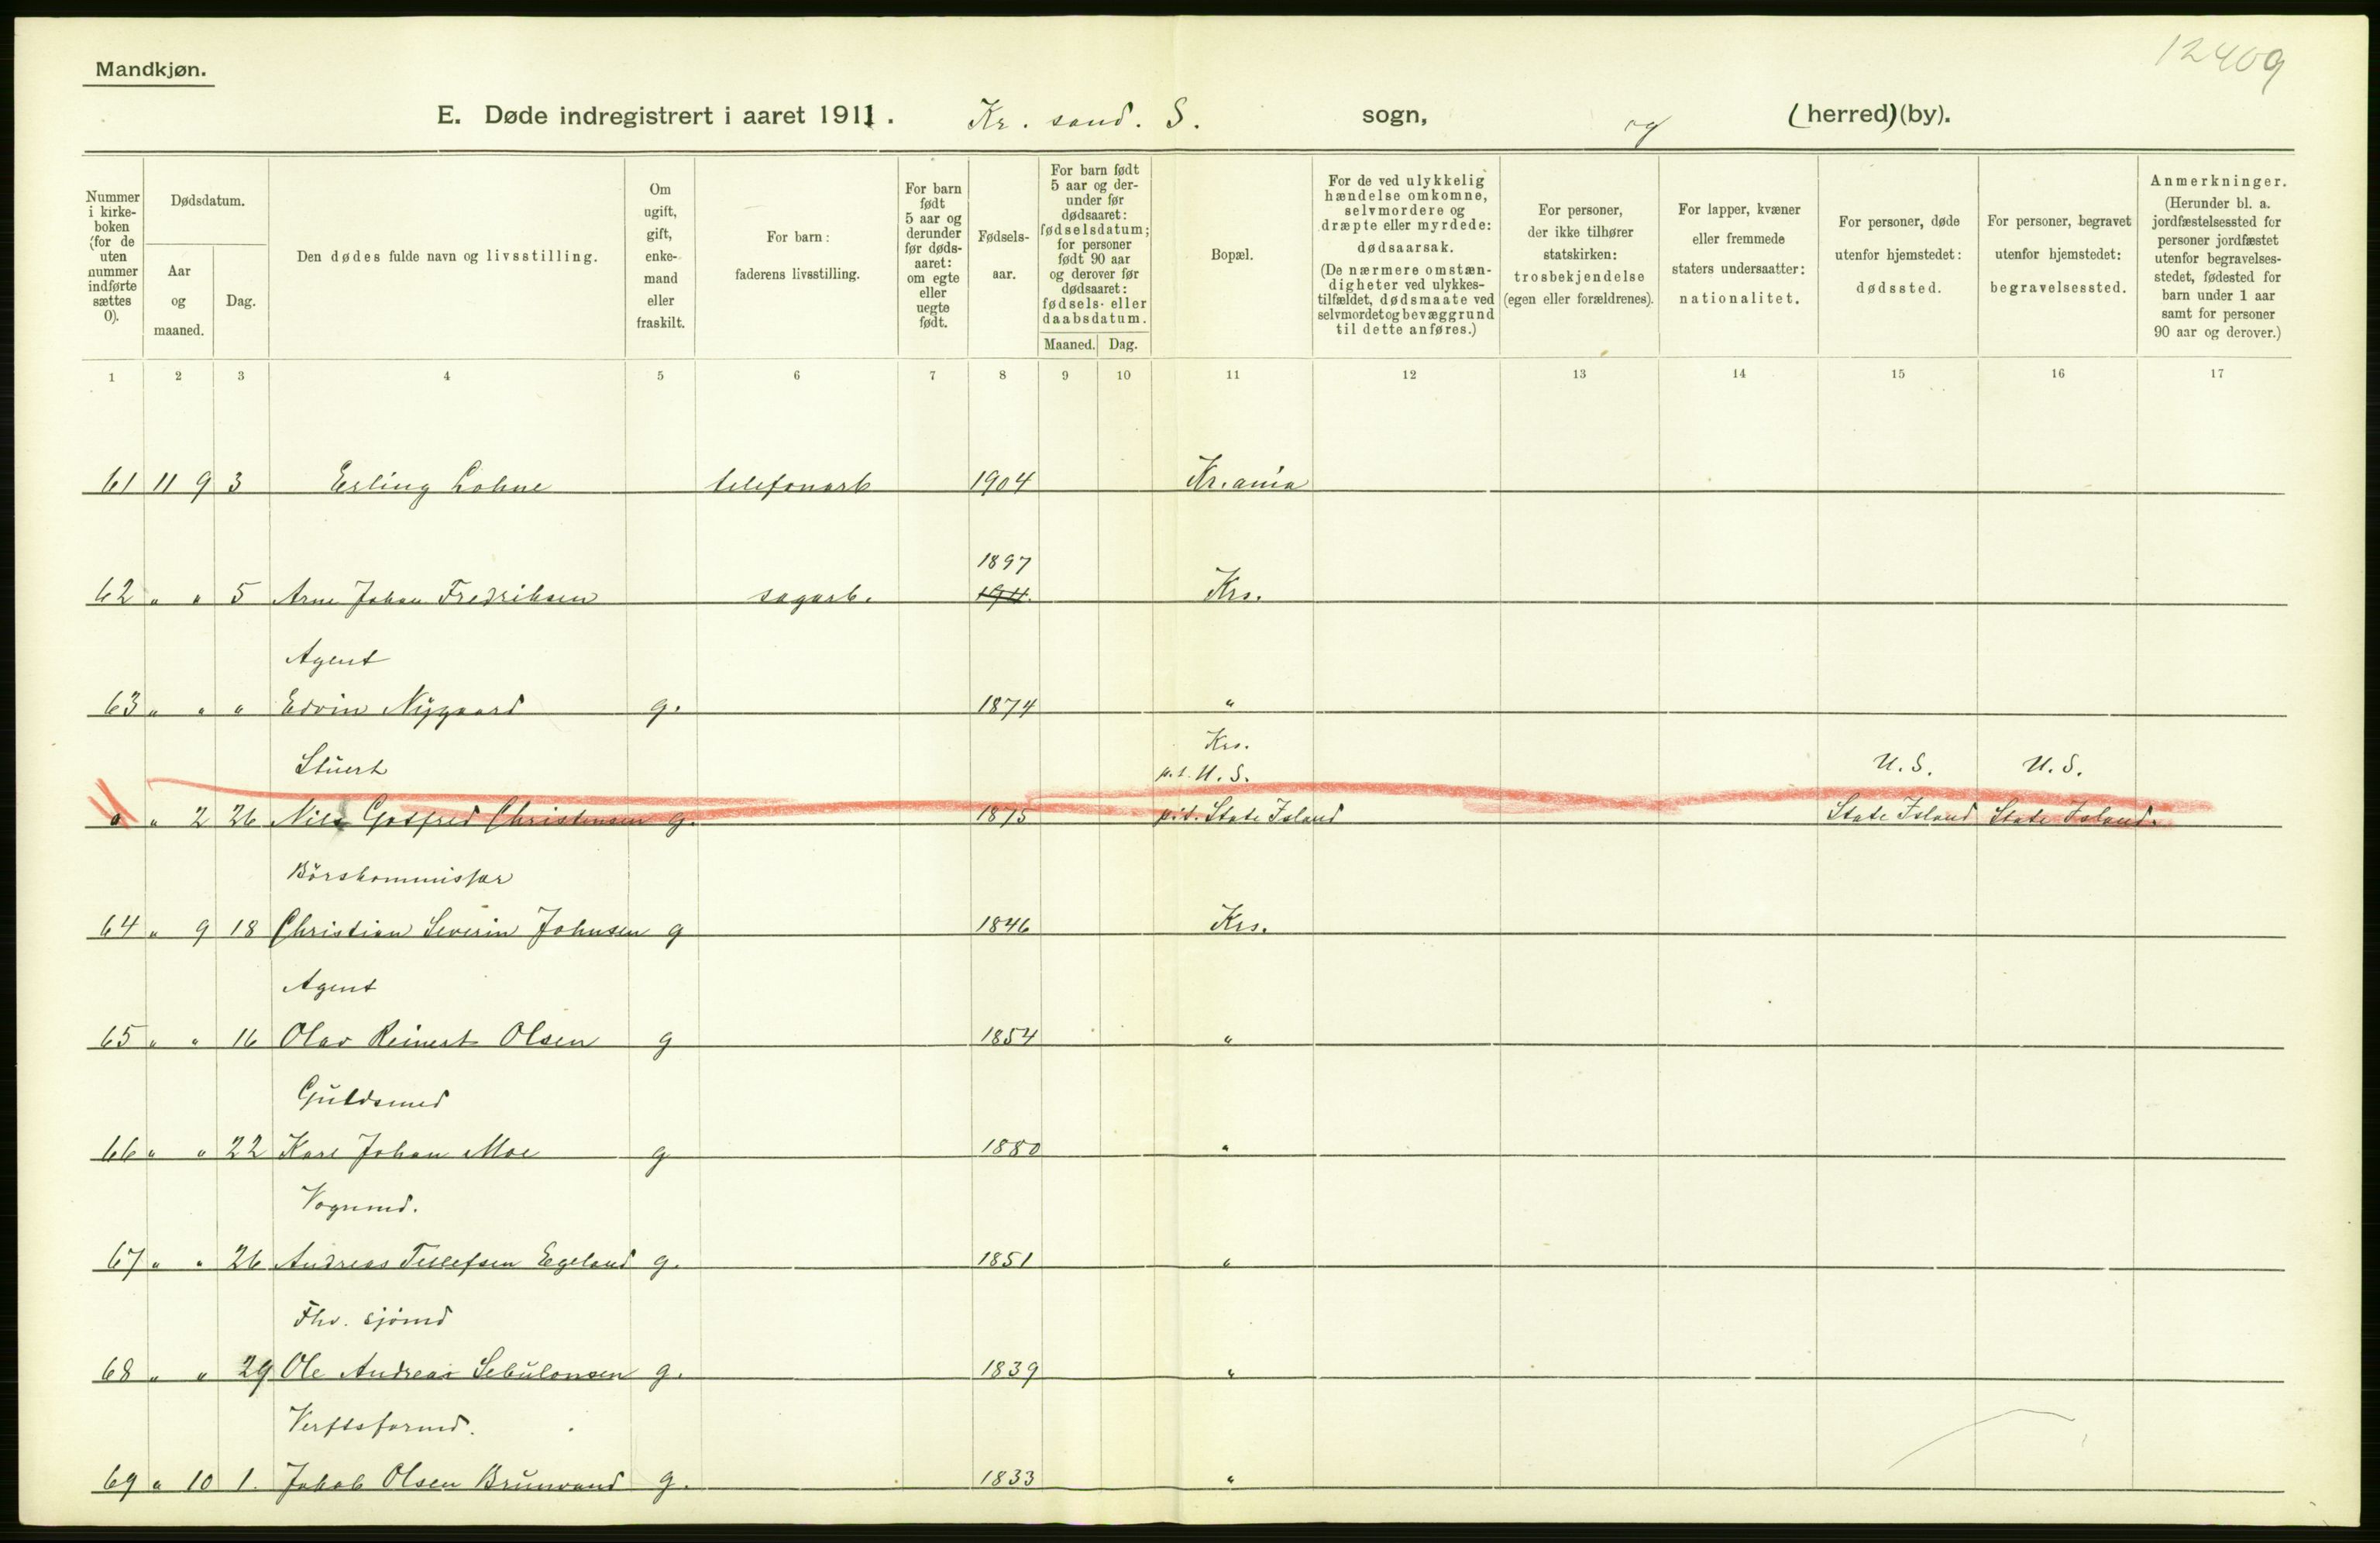 12409
Mandkjøn.
E. Døde indregistrert i aaret 1911. Kr. sand. S. sogn, og (herred) (by).
Nummer i kirke- boken (for de uten nummer indførte sættes 0).
Dødsdatum.
Aar og maaned.
Dag.
Den dødes fulde navn og livsstilling.
Om ugift, gift, enke- mand eller fraskilt.
For barn: faderens livsstilling.
For barn født 5 aar og derunder før døds- aaret: om egte eller uegte født.
Fødsels- aar.
For barn født 5 aar og der- under før dødsaaret: fødselsdatum; for personer født 90 aar og derover før dødsaaret: fødsels- eller daabsdatum.
Maaned. Dag.
Bopæl.
For de ved ulykkelig hændelse omkomne, selvmordere og dræpte eller myrdede: dødsaarsak. (De nærmere omstæn- digheter ved ulykkes- tilfældet, dødsmaate ved selvmordet og bevæggrund til dette anføres.)
For personer, der ikke tilhører statskirken: trosbekjendelse (egen eller forældrenes).
For lapper, kvæner eller fremmede staters undersaatter: nationalitet.
For personer, døde utenfor hjemstedet: dødssted.
For personer, begravet utenfor hjemstedet: begravelsessted.
Anmerkninger. (Herunder bl. a. jordfæstelsessted for personer jordfæstet utenfor begravelses- stedet, fødested for barn under 1 aar samt for personer 90 aar og derover.)
1 2 3 4 5 6 7 8 9 10 11 12 13 14 15 16 17
61 11 9 3 Erling Lohne telefonarb 1904 Kr.ania
1897
62 " " 5 Arne Johan Fredriksen sagarb. 1911. Krs.
Agent
63 " " " Edvin Nygaard g. 1874 "
Krs.
Stuert p.t. U. S. U. S. U. S.
0 " 2 26 Nils Gotfred Christensen g. 1875 p.t. State Island State Island State Island.
Börskommissær
64 " 9 18 Christian Severin Johnsen g 1846 Krs.
Agent
65 " " 16 Olav Reinert Olsen g 1854 "
Guldsmed
66 " " 22 Karl Johan Moe g 1880 "
Vognmd.
67 " " 26 Andreas Tellefsen Egeland g. 1851 "
Fhv. sjömd
68 " " 29 Ole Andreas Sebulonsen g. 1839 "
Verftsformd.
69 " 10 1. Jakob Olsen Brunvand g. 1833 "